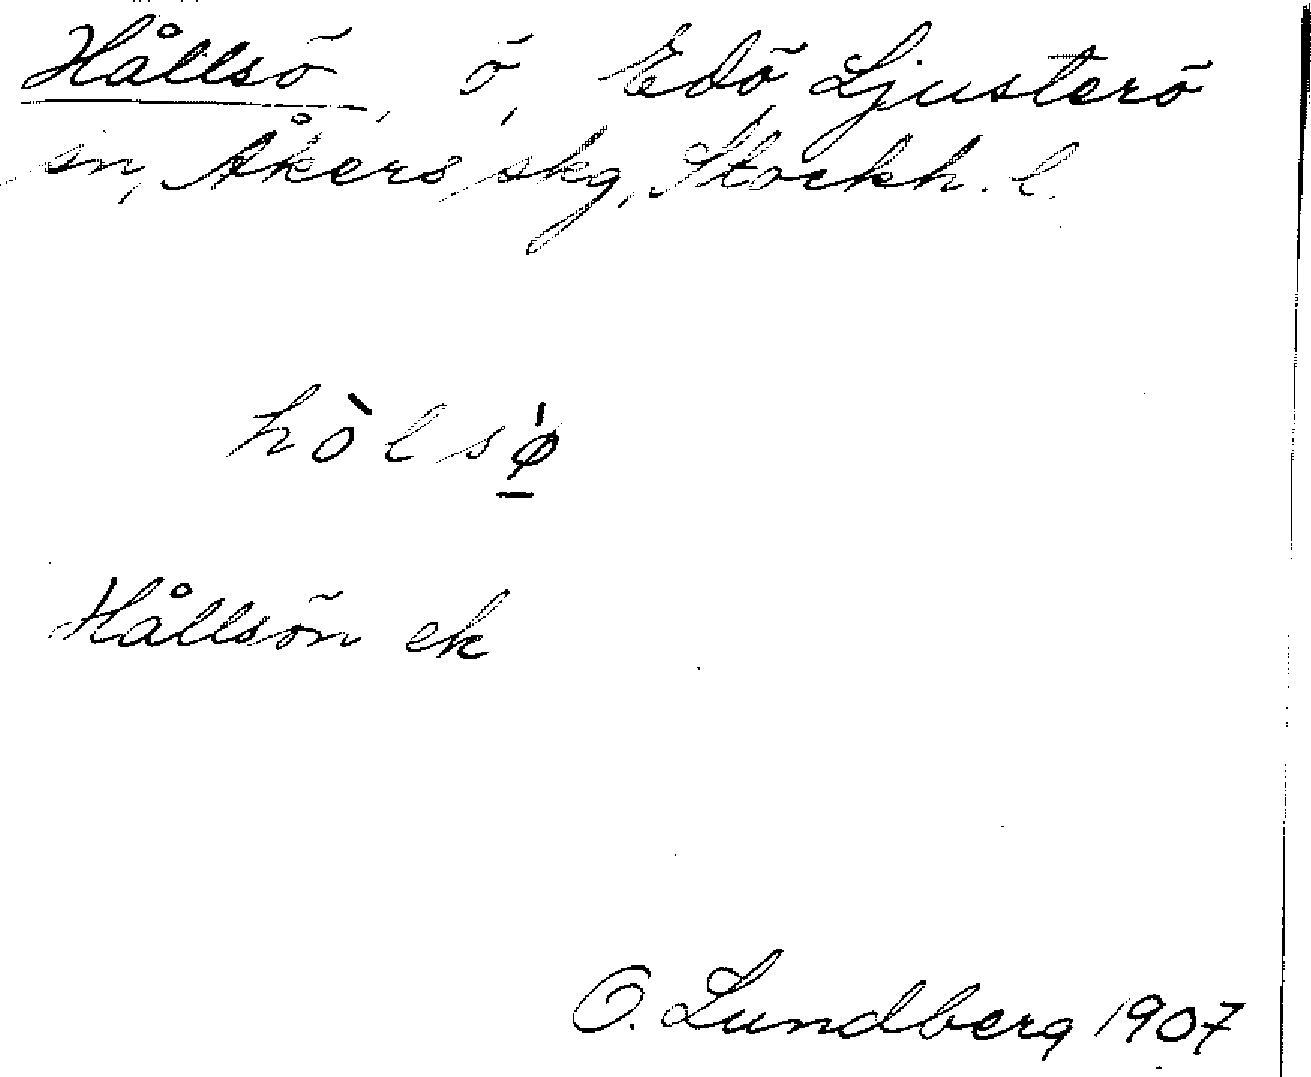 Hållsö, ö, Edö Ljusterö
sn, Åkers skg, Stockh. l.
hòlsǿ̠
Hållsön ek
O. Lundberg 1907